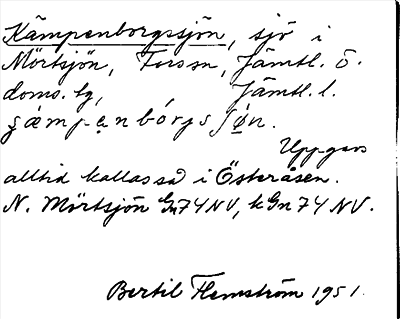 Kämpenborgssjön, sjö i
Mörtsjön, Forssa, Jämtl. ö.
doms.lg, Jämtl. l.
Uppgavs
alltid kallas så i Österåsen.
N. Mörtsjön Gn74NV, k Gn 74 NV.
Bertil Flemström 1951.